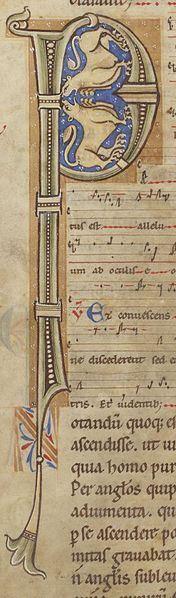 P
tus est allelu
um ab oculis e o
Et conuescens
ne discederent sed e
tris. Et uidentib;
otandū quoq; e
ascendisse. ut u
quia homo pur
Per anglos quip
adiumenta.
p se ascendere po
mitas grauabat.
n anglis subleu